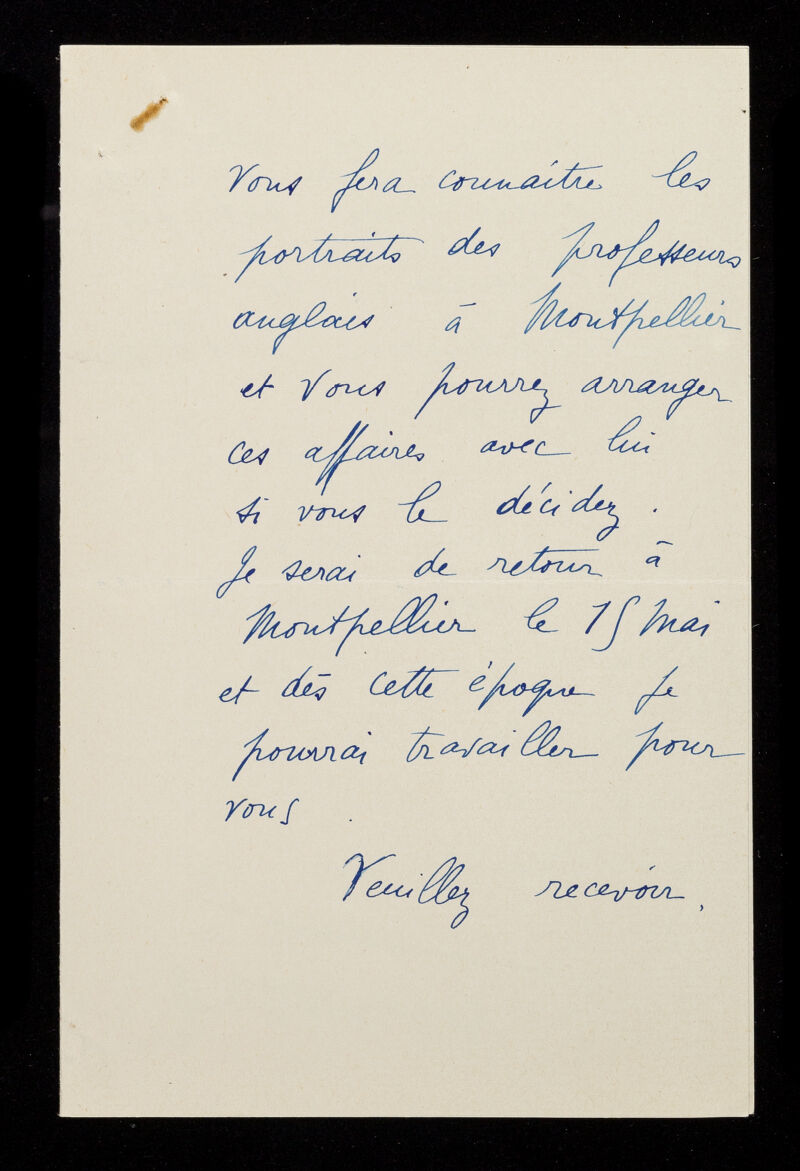 vous fera connaître les
portraits des professeurs
anglais à Montpellier
et vous pourrez arranger
ces affaires avec lui
si vous le décidez.
Je serai de retour à
Montpellier le 15 Mai
et dès cette époque je
pourrai travailler pour
vous
Veuillez recevoir,